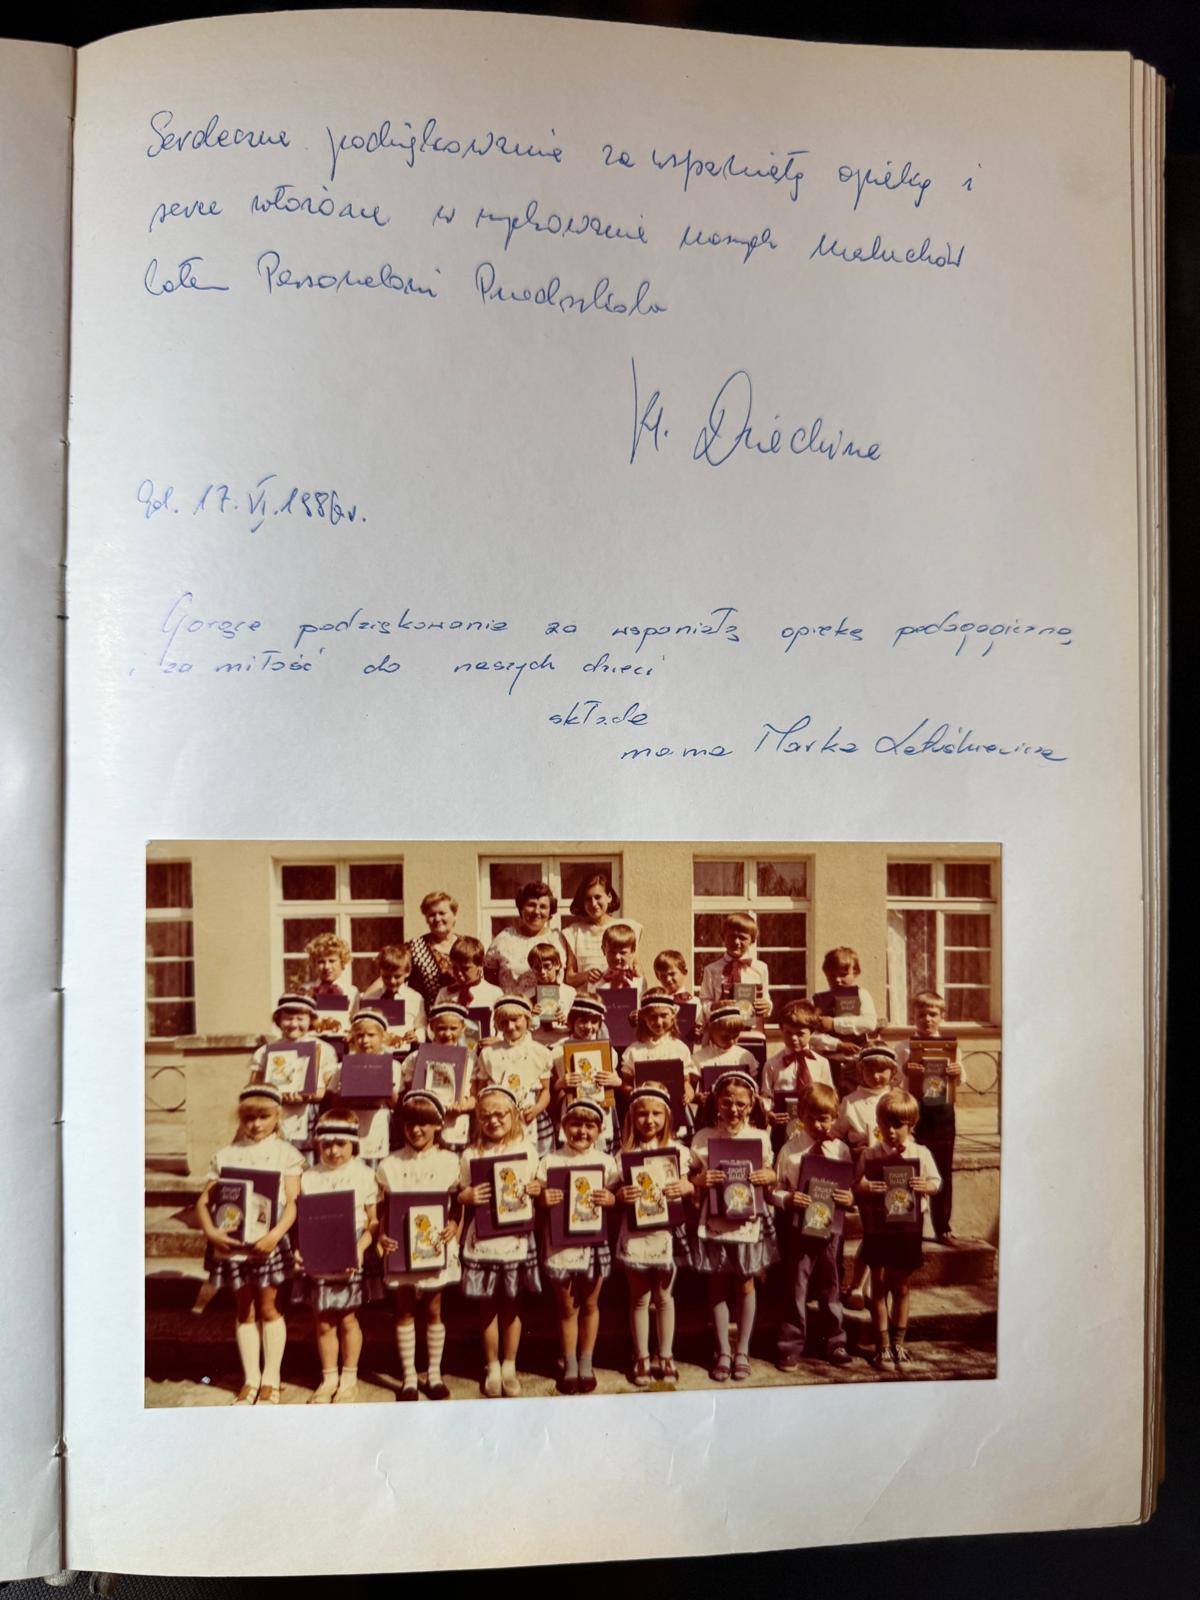 Serdeczne podziękowanie za wspaniałą opiekę i
serce włożone w wychowanie naszych Maluchów
całem Personelowi Przedszkola
K. Dziechine
Gd. 17.VI.1986r.
Gorące podziękowania za wspaniałą opiekę pedagogiczną
i za miłość do naszych dzieci
składa
mama Marka